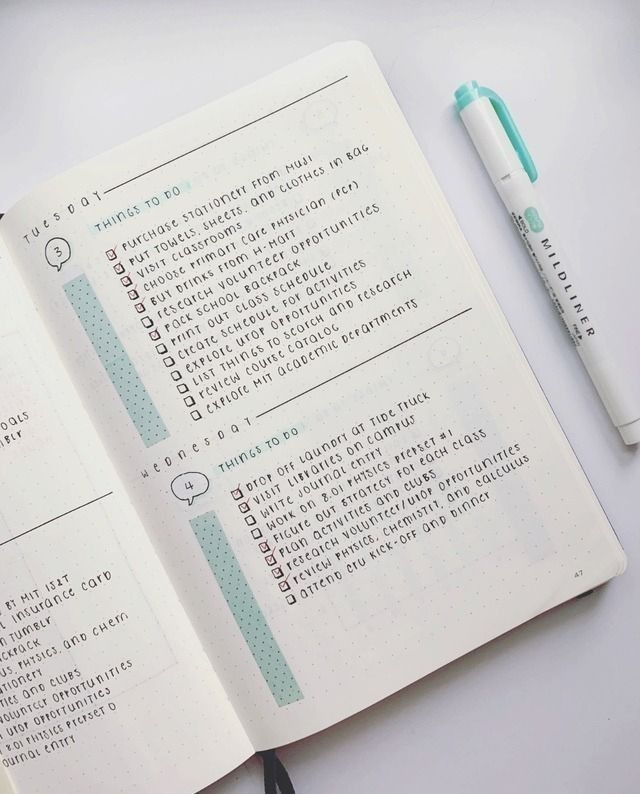 TUESDAY
3
THINGS TO DO
PURCHASE STATIONERY FROM MUJI
PUT TOWELS, SHEETS, AND CLOTHES IN BAG
VISIT CLASSROOMS
CHOOSE PRIMARY CARE PHYSICIAN (PCP)
BUY DRINKS FROM H-MART
RESEARCH VOLUNTEER OPPORTUNITIES
PACK SCHOOL BACKPACK
PRINT OUT CLASS SCHEDULE
CREATE SCHEDULE FOR ACTIVITIES
EXPLORE UROP OPPORTUNITIES
LIST THINGS TO SEARCH AND RESEARCH
REVIEW COURSE CATALOG
EXPLORE MIT ACADEMIC DEPARTMENTS
WEDNESDAY
4
THINGS TO DO
DROP OFF LAUNDRY AT TIDE TRUCK
VISIT LIBRARIES ON CAMPUS
WRITE JOURNAL ENTRY
WORK ON 8.01 PHYSICS PREPSET #1
FIGURE OUT STRATEGY FOR EACH CLASS
PLAN ACTIVITIES AND CLUBS
RESEARCH VOLUNTEER/UROP OPPORTUNITIES
REVIEW PHYSICS, CHEMISTRY, AND CALCULUS
ATTEND CRU KICK-OFF AND DINNER
47
OALS
MBLR
INSURANCE CARD
TUMBLR
CKPACK
PHYSICS AND CHEM
TIONERY
TIES AND CLUBS
VOLUNTEER OPPORTUNITIES
UROP OPPORTUNITIES
8.01 PHYSICS PREPSET 0
OURNAL ENTRY
MILDLINER